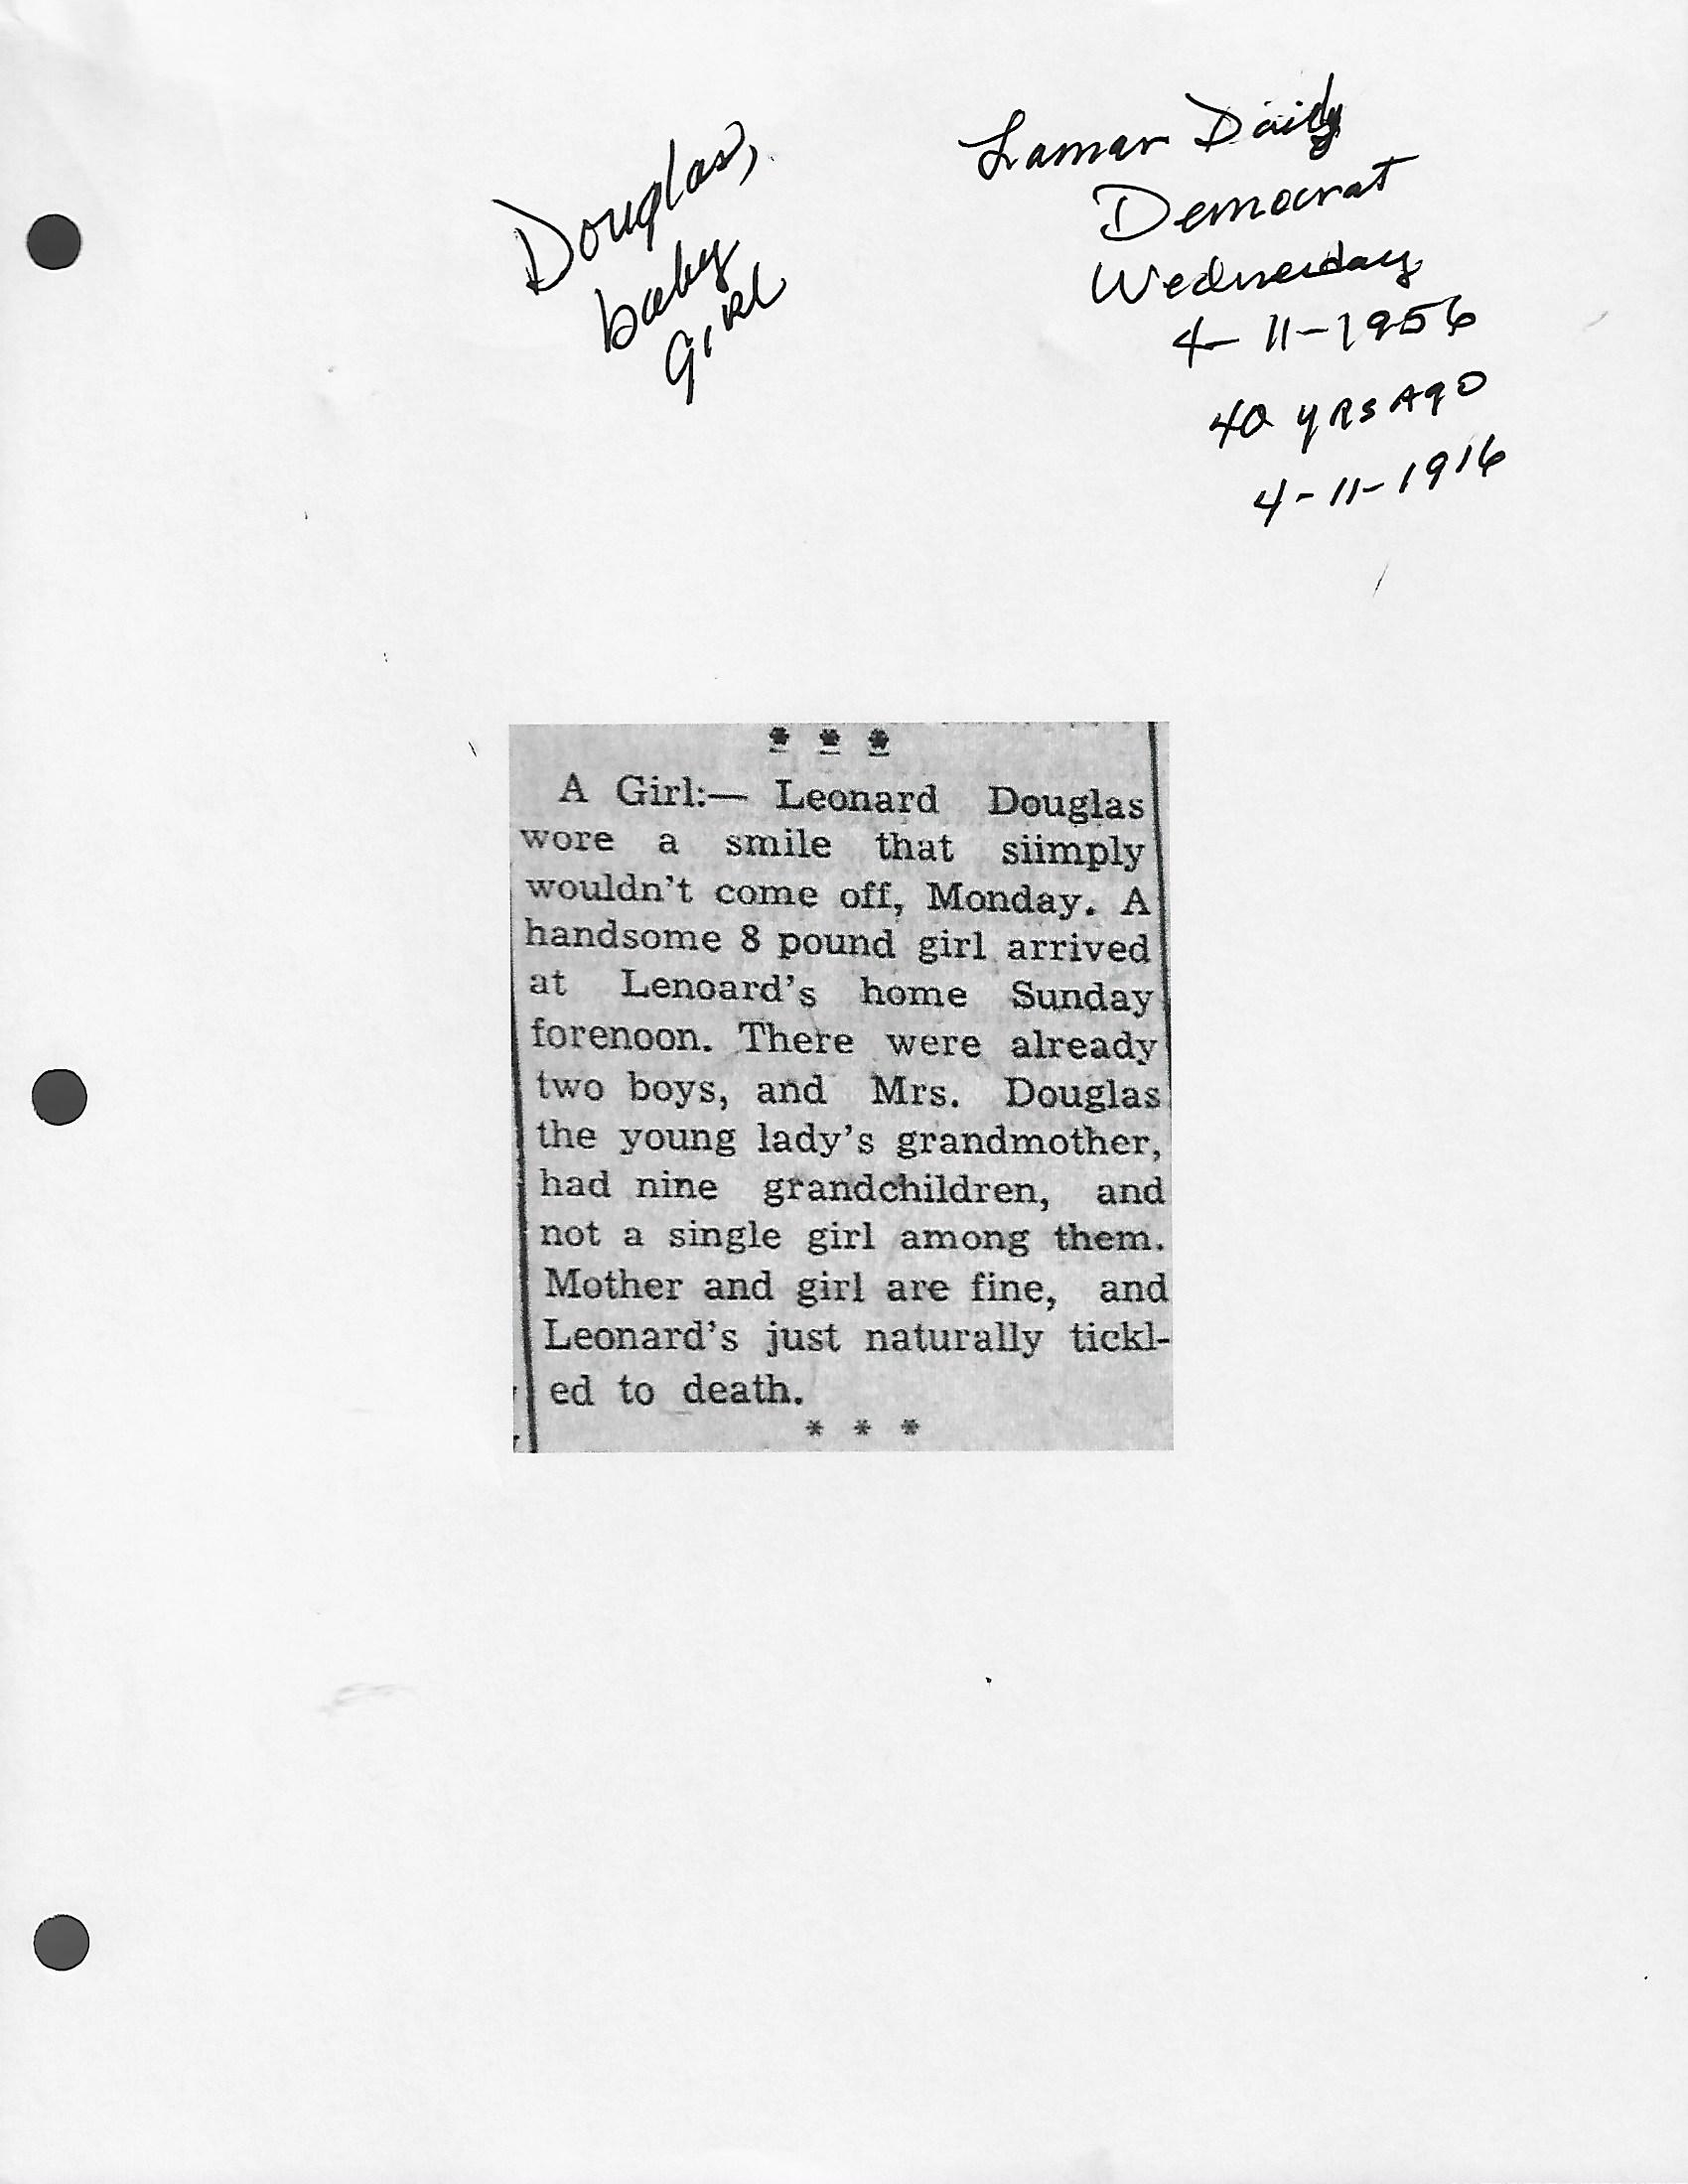 Douglas,
baby
girl
Lamar Daily
Democrat
Wednesday
4-11-1956
40 yrs Ago
4-11-1916
* * *
A Girl:— Leonard Douglas
wore a smile that siimply
wouldn't come off, Monday. A
handsome 8 pound girl arrived
at Lenoard's home Sunday
forenoon. There were already
two boys, and Mrs. Douglas
the young lady's grandmother,
had nine grandchildren, and
not a single girl among them.
Mother and girl are fine, and
Leonard's just naturally tickl-
ed to death.
* * *